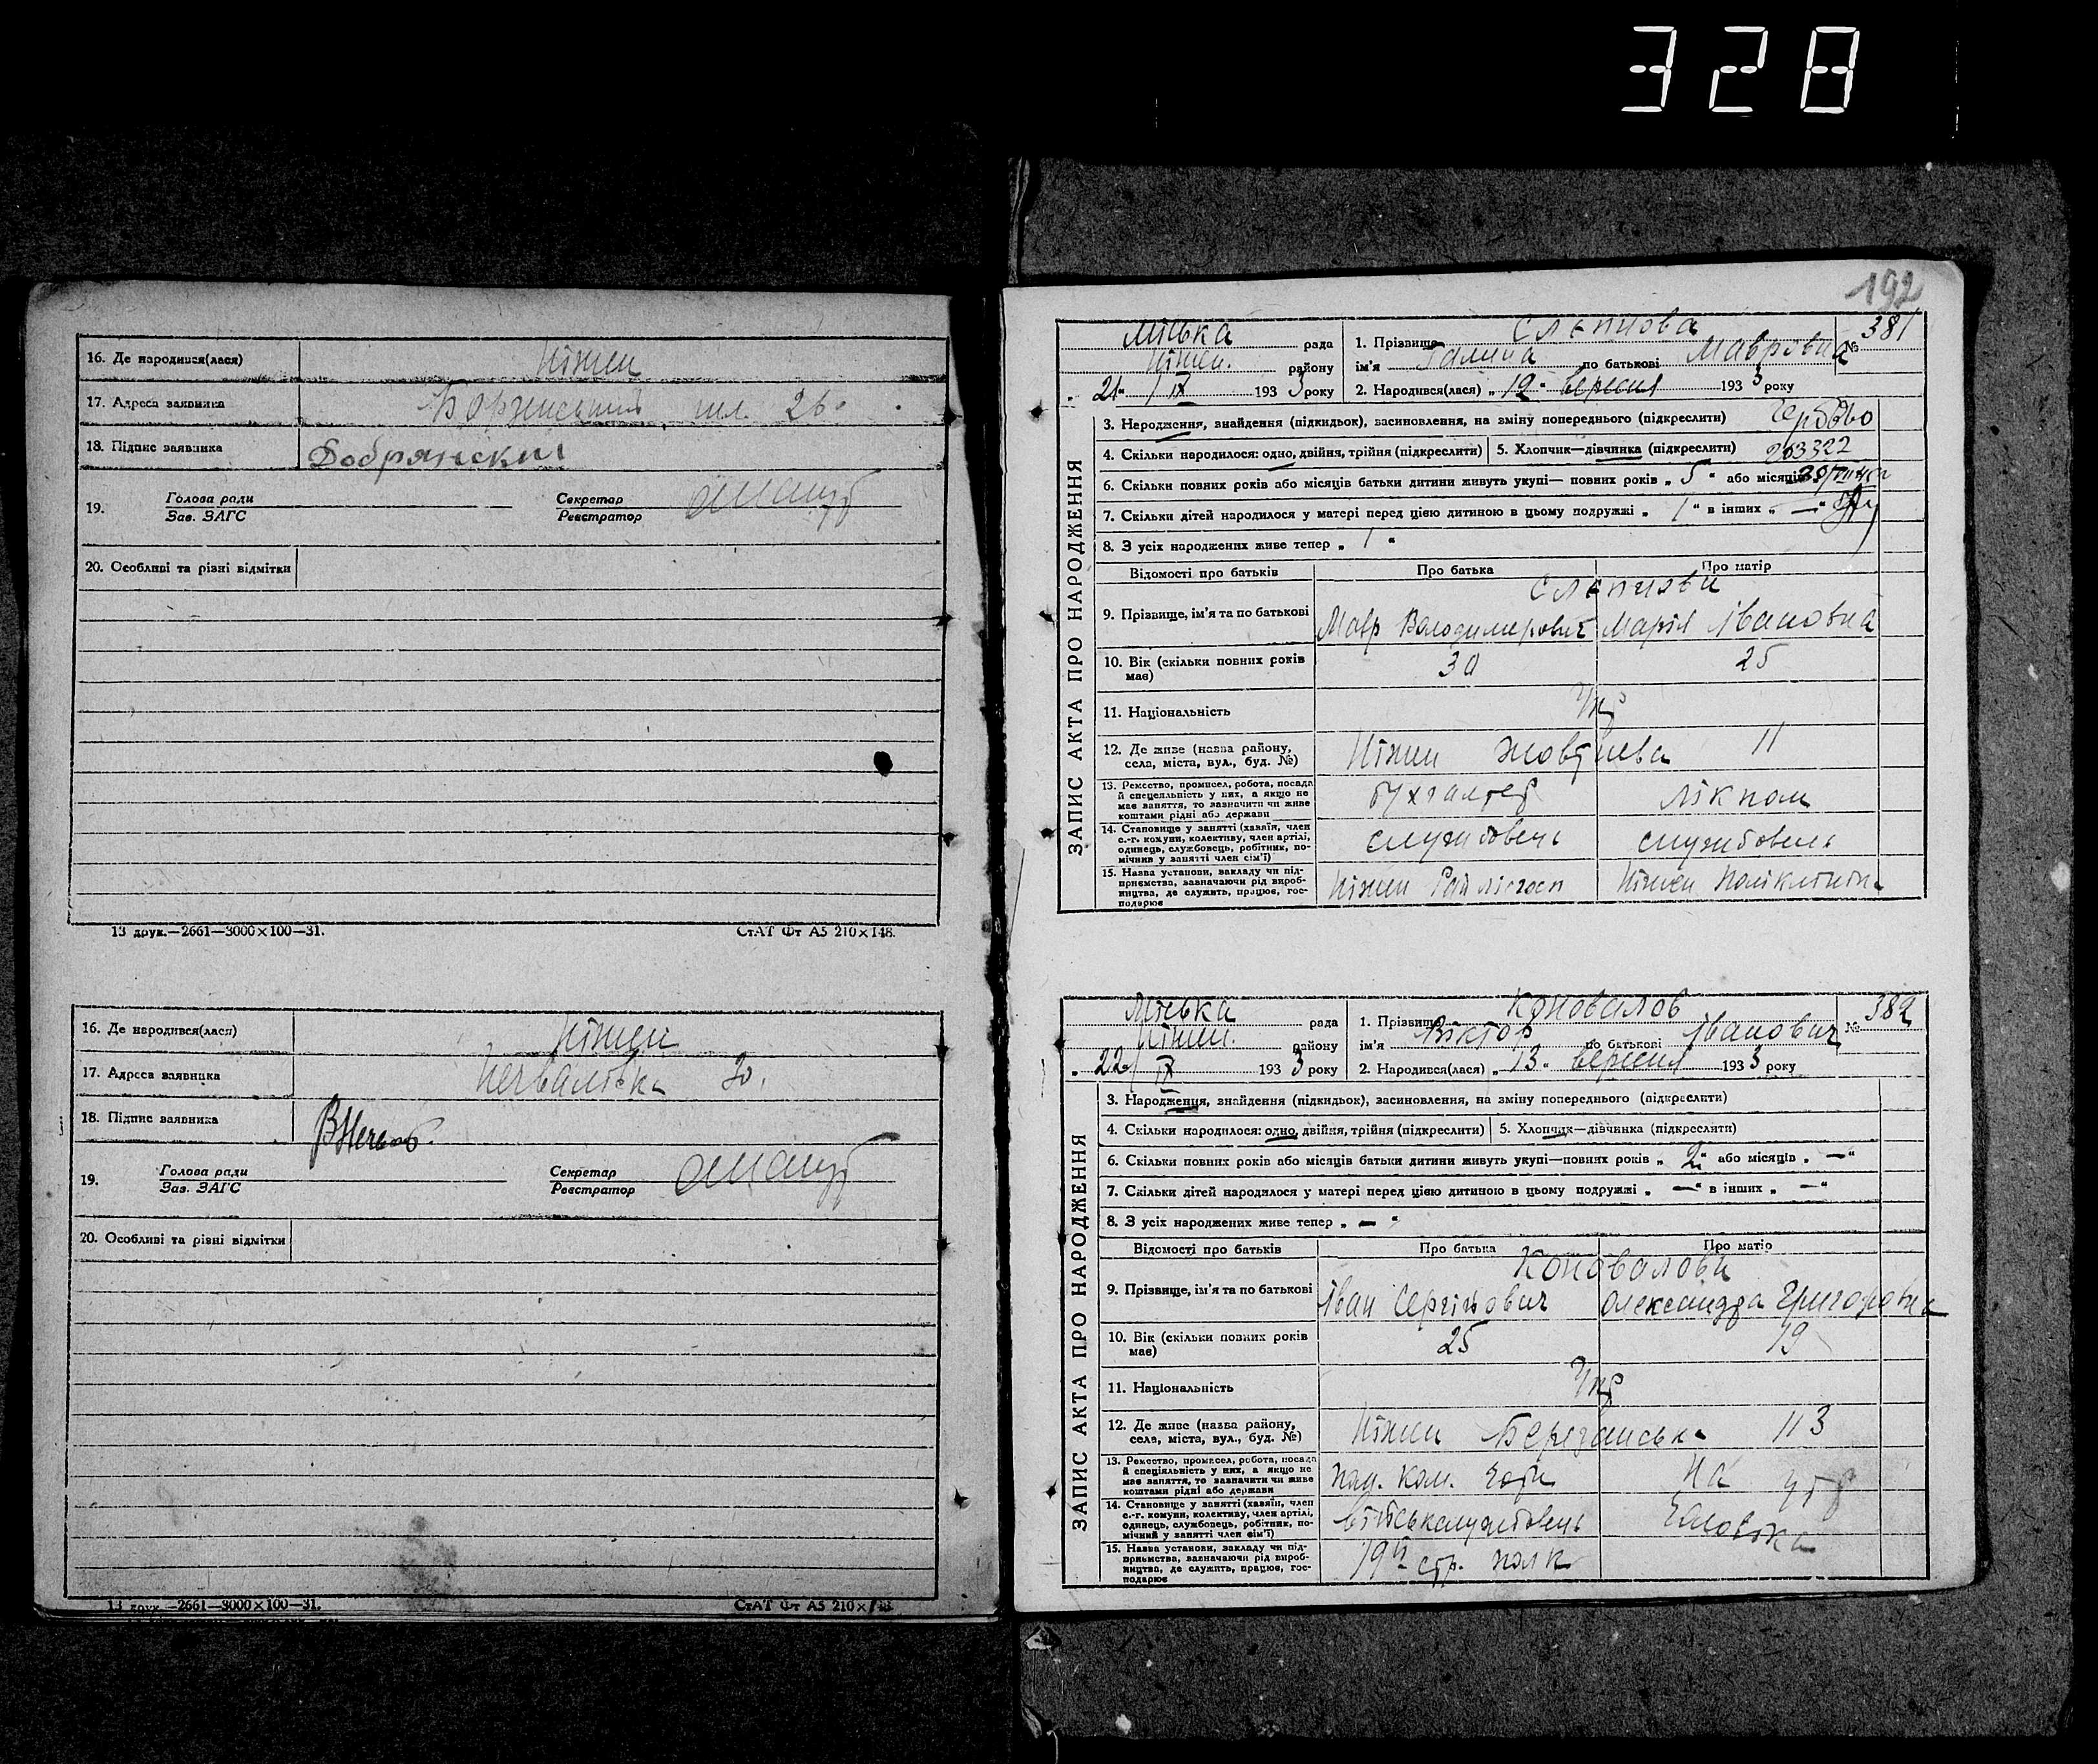 328
16. Де народився(лася) Ніжен
17. Адреса заявника Борзенський шл. 26.
18. Підпис заявника Добрянский
19. Голова ради Секретар
Зав. ЗАГС Реєстратор
20. Особливі та різні відмітки
13 друк.—2661—3000×100—31. СтАТ Фт А5 210×148.
16. Де народився(лася) Ніжен
17. Адреса заявника 30.
18. Підпис заявника
19. Голова ради Секретар
Зав. ЗАГС Реєстратор
20. Особливі та різні відмітки
13 друк.—2661—3000×100—31. СтАТ Фт А5 210×148.
192
ЗАПИС АКТА ПРО НАРОДЖЕННЯ
Міська рада 1. Прізвище Слєпцова № 381
Ніжен. району ім'я Галина по батькові Мавровна
„ 21 “ / IX 1933 року 2. Народився(лася) „ 12 “ вересня 1933 року
3. Народження, знайдення (підкидьок), васиновлення, на зміну попереднього (підкреслити)
4. Скільки народилося: одно, двійня, трійня (підкреслити) 5. Хлопчик—дівчинка (підкреслити) 263322
6. Скільки повних років або місяців батьки дитини живуть укупі— повних років „ 5 “ або місяців
7. Скільки дітей народилося у матері перед цією дитиною в цьому подружжі „ 1 “ в інших „ — “
8. З усіх народжених живе тепер „ 1 “
Відомості про батьків Про батька Про матір
Слєпцови
9. Прізвище, ім'я та по батькові Мавр Володимирович Марія Івановна
10. Вік (скільки повних років має) 30 25
11. Національність Укр
12. Де живе (назва району, села, міста, вул., буд. №) Ніжен Жовтнева 11
13. Ремество, промисел, робота, посада й спеціяльність у них, а якщо не має заняття, то зазначити чи живе коштами рідні або держави бухгалтер лікпом
14. Становище у занятті (хазяїн, член с.-г. комуни, колективу, член артілі, одинець, службовець, робітник, помічний у занятті член сім'ї) службовець службовець
15. Назва установи, закладу чи підприємства, зазначаючи рід виробництва, де служить, працює, господарює Ніжен Райлісгосп Ніжен Поліклініка
ЗАПИС АКТА ПРО НАРОДЖЕННЯ
Міська рада 1. Прізвище Коновалов № 382
Ніжен. району ім'я Віктор по батькові Іванович
„ 22 / IX 1933 року 2. Народився(лася) „ 13 “ вересня 1933 року
3. Народження, знайдення (підкидьок), засиновлення, на зміну попереднього (підкреслити)
4. Скільки народилося: одно, двійня, трійня (підкреслити) 5. Хлопчик—дівчинка (підкреслити)
6. Скільки повних років або місяців батьки дитини живуть укупі—повних років „ 2 “ або місяців „ — “
7. Скільки дітей народилося у матері перед цією дитиною в цьому подружжі „ — “ в інших „ — “
8. З усіх народжених живе тепер „ — “
Відомості про батьків Про батька Про матір
Коновалови
9. Прізвище, ім'я та по батькові Іван Сергійович Олександра Григоровна
10. Вік (скільки повних років має) 25 19
11. Національність Укр
12. Де живе (назва району, села, міста, вул., буд. №) Ніжен Березанська 113
13. Ремество, промисел, робота, посада й спеціяльність у них, а якщо не має заняття, то зазначити чи живе коштами рідні або держави пом. ком. роти на утр
14. Становище у занятті (хазяїн, член с.-г. комуни, колективу, член артілі, одинець, службовець, робітник, помічний у занятті член сім'ї) військслужбовець чоловіка
15. Назва установи, закладу чи підприємства, зазначаючи рід виробництва, де служить, працює, господарює 19й стр. полк